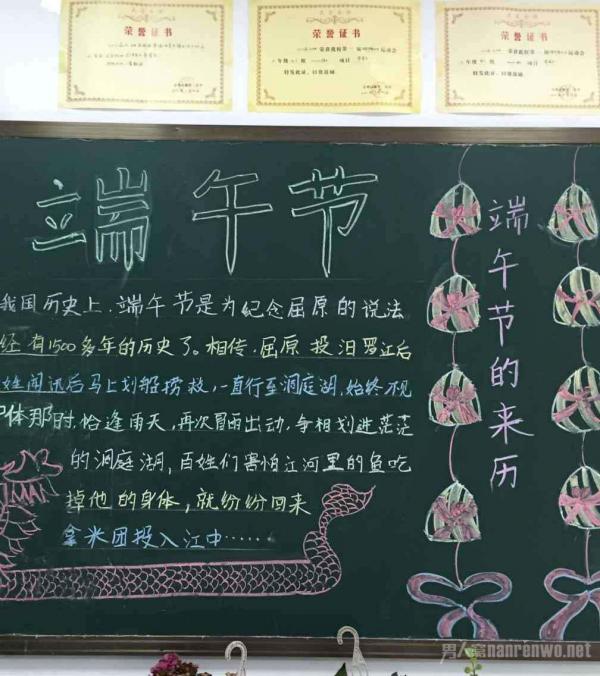 荣誉证书
荣誉证书
荣获我校第
运动会
特发此证,以资鼓励
荣誉证书
荣获我校第
运动会
特发此证,以资鼓励
端午节
我国历史上,端午节是为纪念屈原的说法
经有1500多年的历史了。相传,屈原投汨罗江后
姓闻讯后马上划船捞救,一直行至洞庭湖,始终不见
体那时,恰逢雨天,再次冒雨出动,争相划进茫茫
的洞庭湖,百姓们害怕江河里的鱼吃
掉他的身体,就纷纷回来
拿米团投入江中……
端午节的来历
男人窝nanrenwo.net